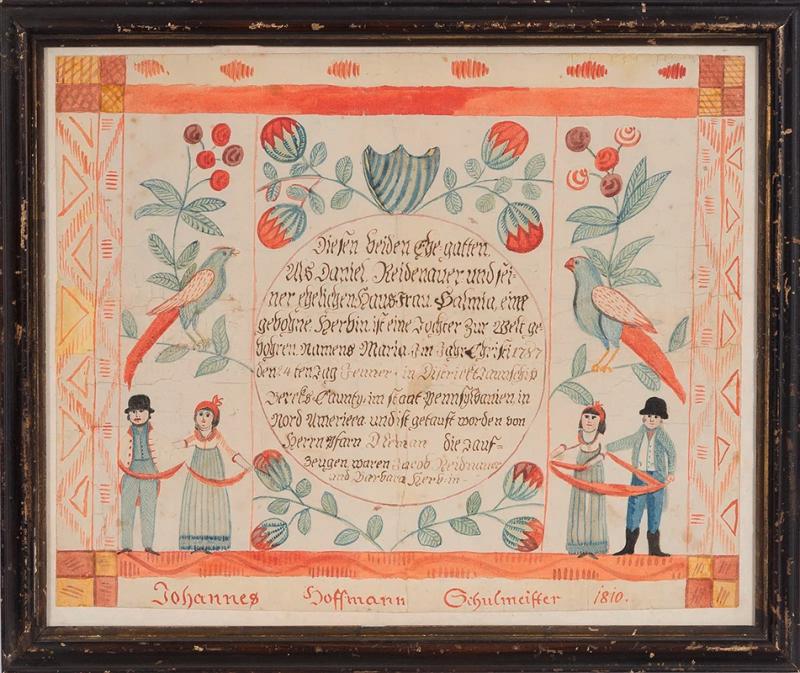 Diesen beiden Ehe-gatten,
Als Daniel Reidenauer und sei-
ner ehelichen Hausfrau Salmia, eine
gebohne Herbin ist eine Tochter Zur Welt ge-
bohren Namens Maria Im Jahr Christi 1787
den 4ten Tag Jenner in District Taunschip
Bereks-Caunty im staat Pennsÿlvanien in
Nord Amerieca und ist getauft worden von
Herrn Pfarn die Tauf-
Zeugen waren Jacob Reidnauer
und Barbara Herb-in-
Johannes Hoffmann Schulmeister 1810.